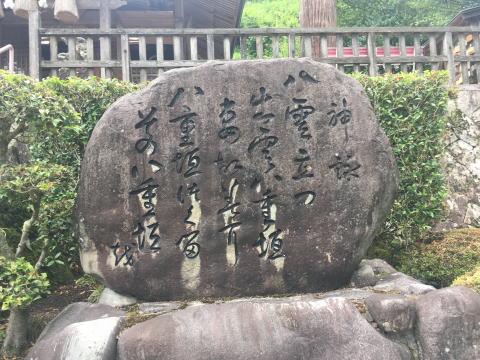 神詠
八雲立つ
出雲八重垣
八重垣つくる
その八重垣
越